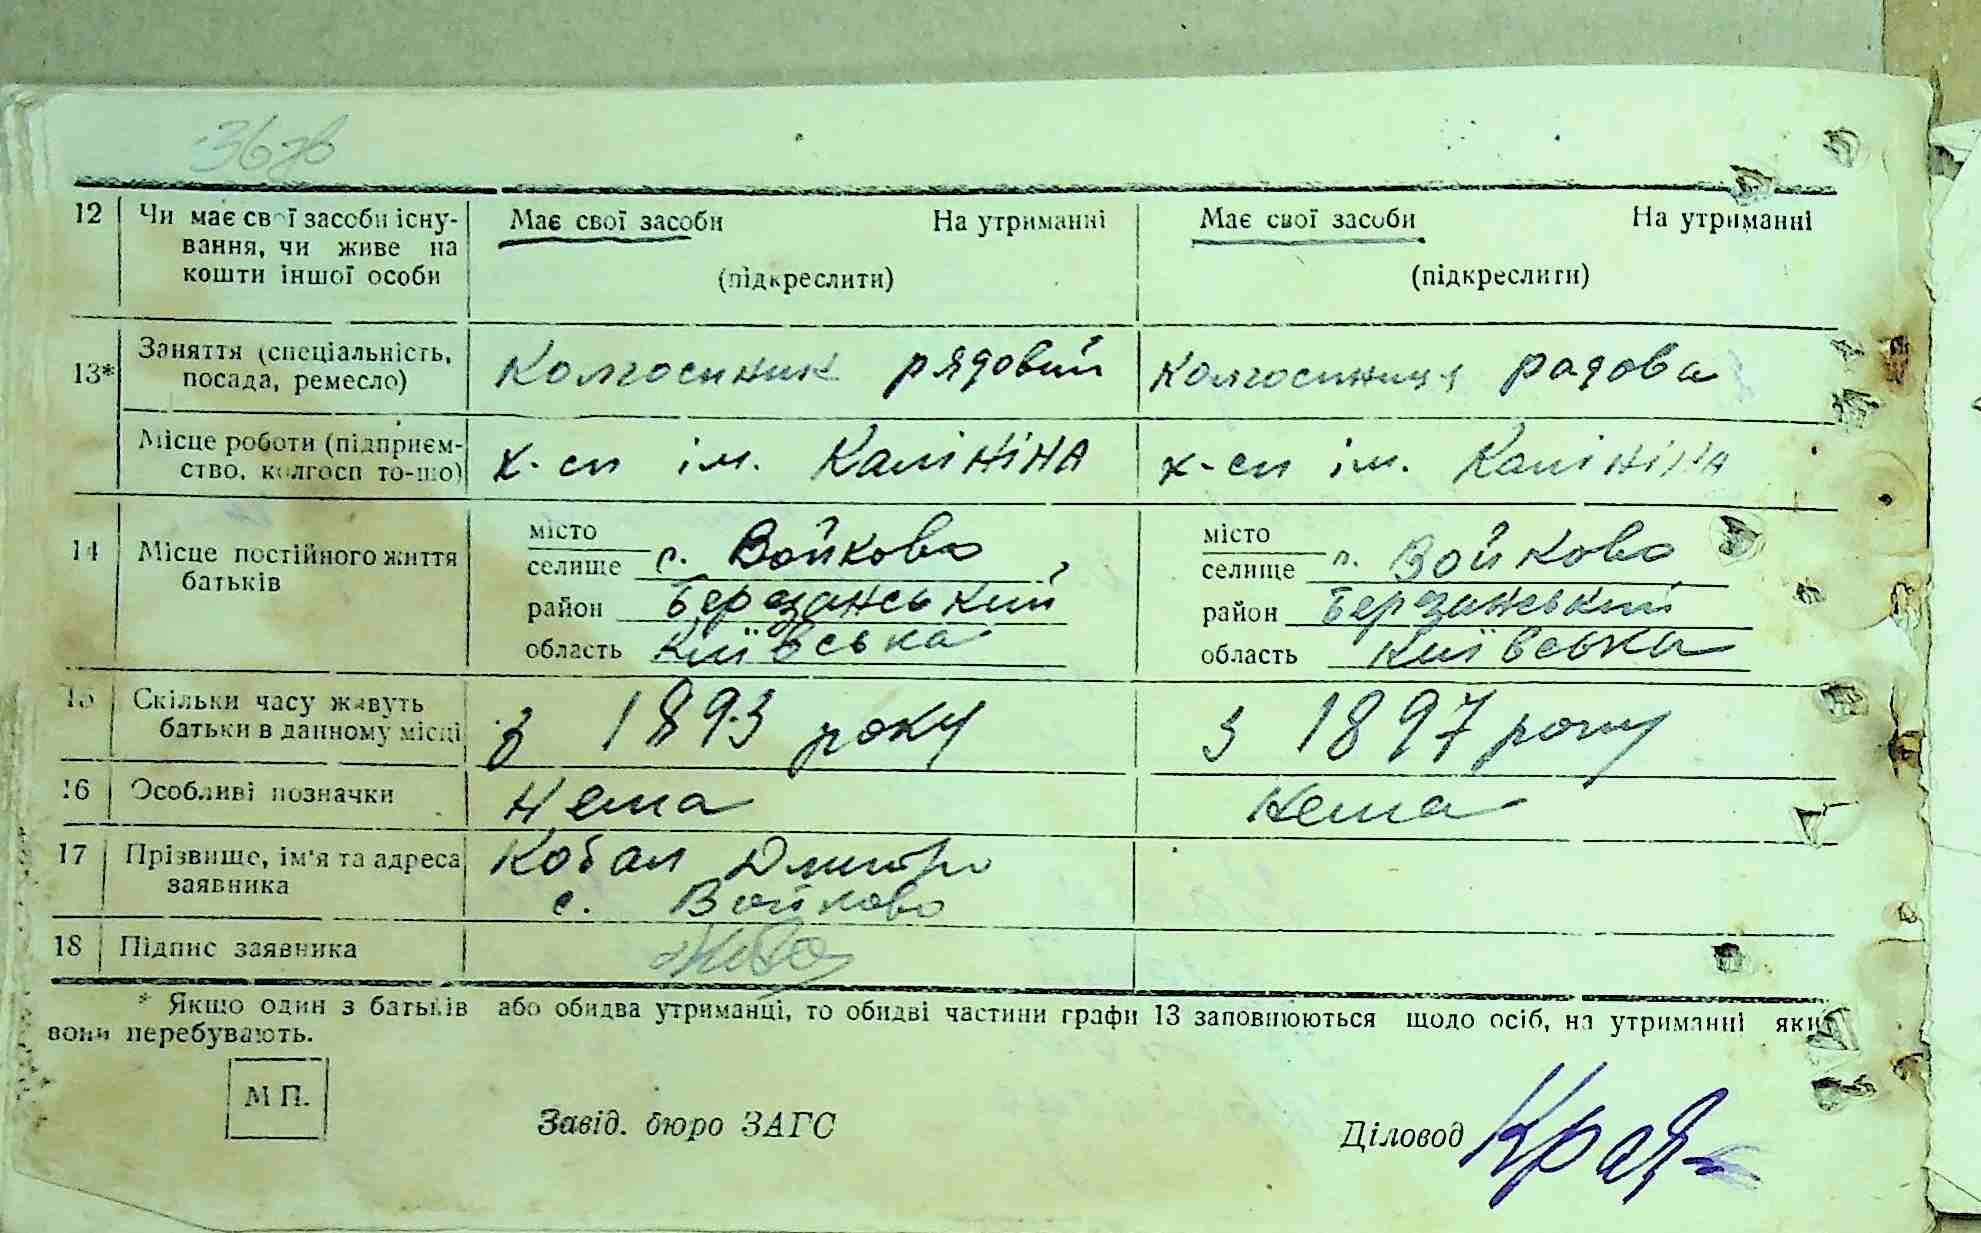 36зв
12 Чи має свої засоби існу- Має свої засоби На утриманні Має свої засоби На утриманні
вання, чи живе на
кошти іншої особи (підкреслити) (підкреслити)
13* Заняття (спеціальність, Колгоспник рядовий Колгоспниця радова
посада, ремесло)
Місце роботи (підприєм- к-сп ім. Калініна к-сп ім. Калініна
ство, колгосп то-що)
14 Місце постійного життя місто місто
батьків селище с. Войково селище с. Войково
район Березанський район Березанський
область Київська область Київська
15 Скільки часу живуть з 1893 року з 1897 року
батьки в данному місці
16 Особливі позначки Нема Нема
17 Прізвище, ім'я та адреса Кобал Дмитро
заявника с. Войково
18 Підпис заявника
* Якщо один з батьків або обидва утриманці, то обидві частини графи 13 заповнюються щодо осіб, на утриманні яких
вони перебувають.
М П.
Завід. бюро ЗАГС Діловод